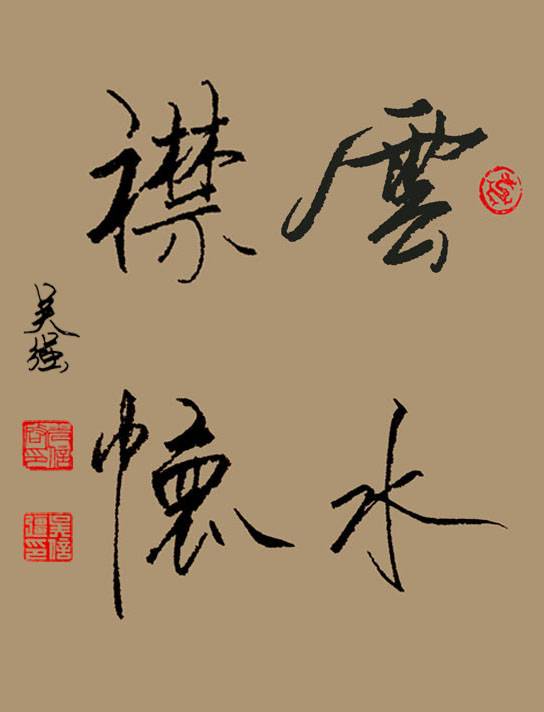 雲水
襟懷
吴強